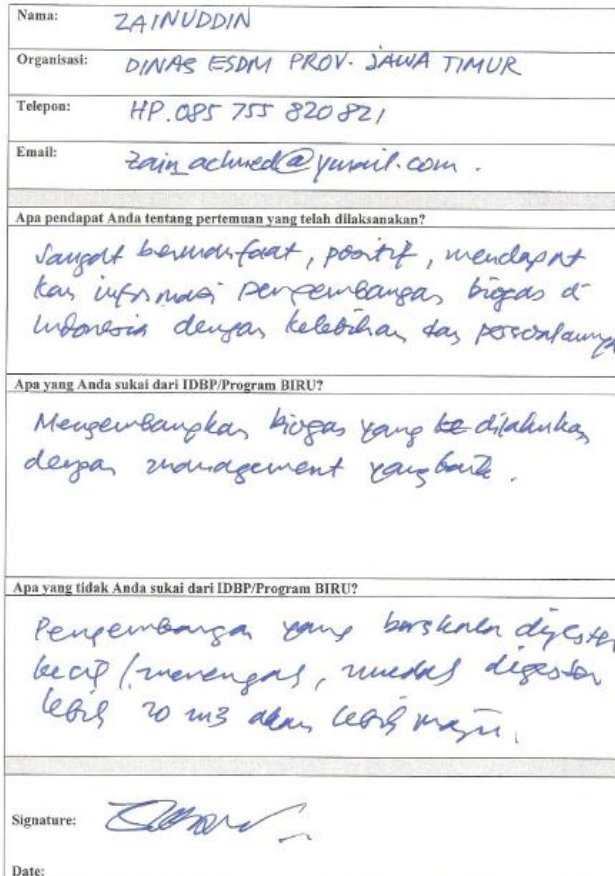 Nama: ZAINUDDIN
Organisasi: DINAS ESDM PROV. JAWA TIMUR
Telepon: HP. 085 755 820 821
Email: zain_achmed@ymail.com .
Apa pendapat Anda tentang pertemuan yang telah dilaksanakan?
Sangat bermanfaat, positif, mendapat
kan informasi pengembangan biogas di
Indonesia dengan kelebihan dan persoalannya
Apa yang Anda sukai dari IDBP/Program BIRU?
Mengembangkan biogas yang dilakukan
dengan management yang baik.
Apa yang tidak Anda sukai dari IDBP/Program BIRU?
Pengembangan yang berskala digester
kecil / menengah, digester
lebih 20 m3 akan lebih maju.
Signature:
Date: